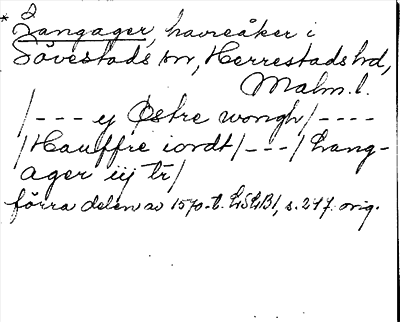 * Langager, havreåker i
Sövestads sn, Herrestads hd,
Malm. l.
/--- y Østre wongh/----
/Hauffre iordt/---/Lang-
ager iij tr/
förra delen av 1570-t. LSLB1, s. 217. orig.